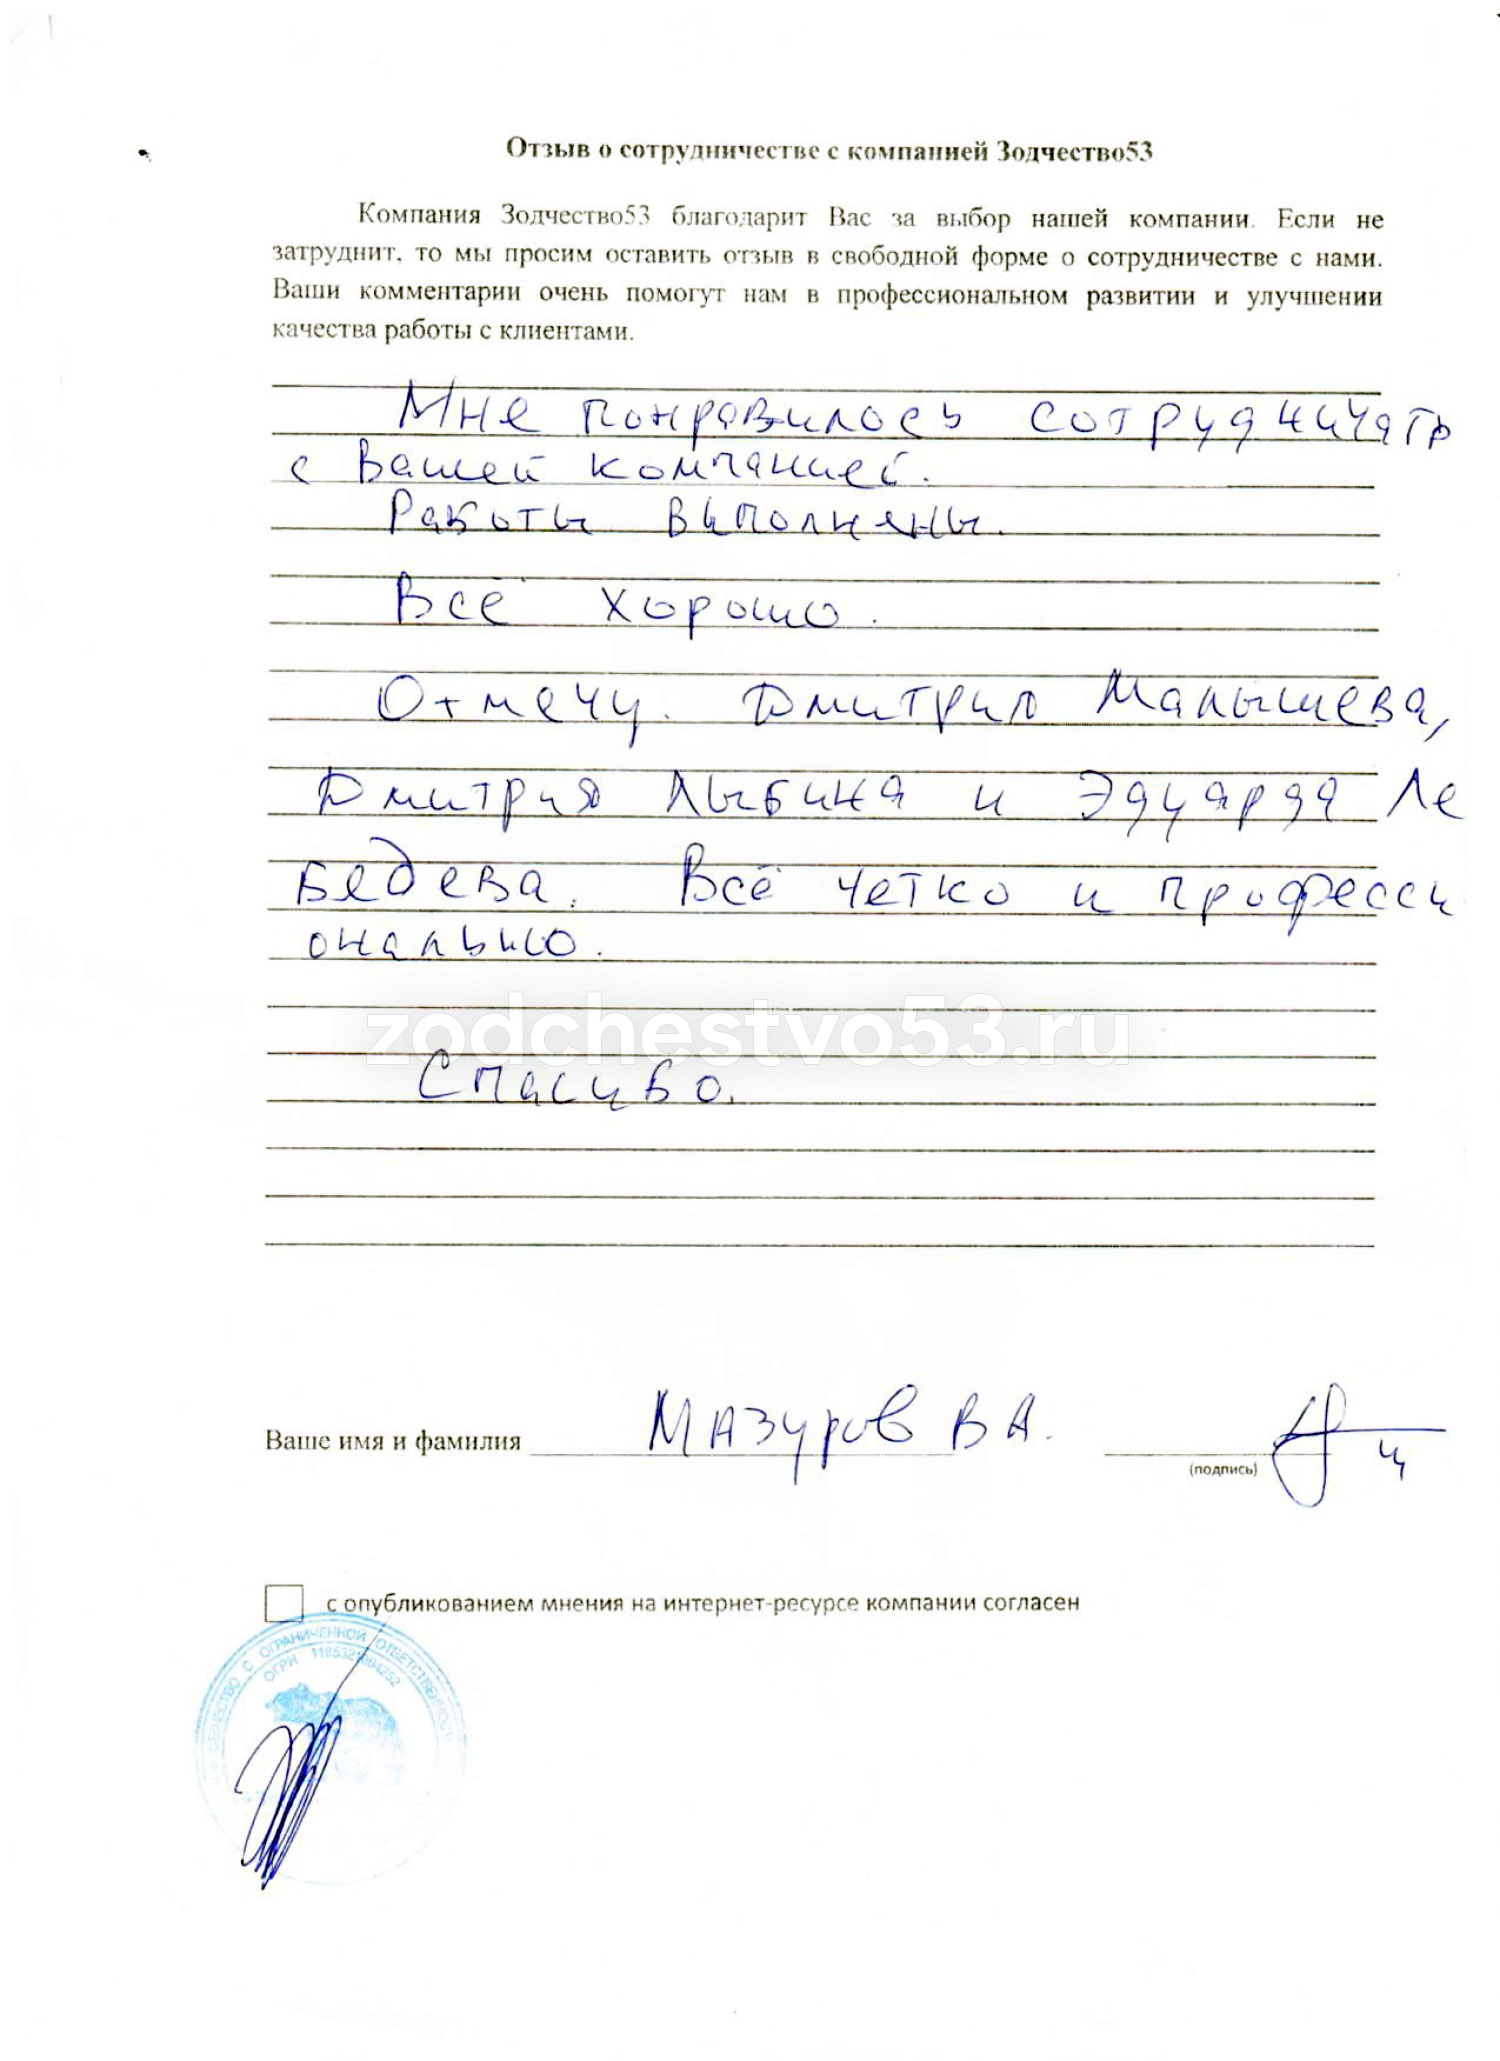 Отзыв о сотрудничестве с компанией Зодчество53
Компания Зодчество53 благодарит Вас за выбор нашей компании. Если не
затруднит, то мы просим оставить отзыв в свободной форме о сотрудничестве с нами.
Ваши комментарии очень помогут нам в профессиональном развитии и улучшении
качества работы с клиентами.
Мне понравилось сотрудничать
с Вашей компанией.
Работы выполнены.
Всё хорошо.
Отмечу. Дмитрия Малышева,
Дмитрия Лыбина и Эдуарда Ле
бедева. Всё четко и професси
онально.
zodchestvo53.ru
Спасибо.
Ваше имя и фамилия Мазуров В А.
(подпись)
с опубликованием мнения на интернет-ресурсе компании согласен
ОБЩЕСТВО С ОГРАНИЧЕННОЙ ОТВЕТСТВЕННОСТЬЮ
ОГРН 1185321004252